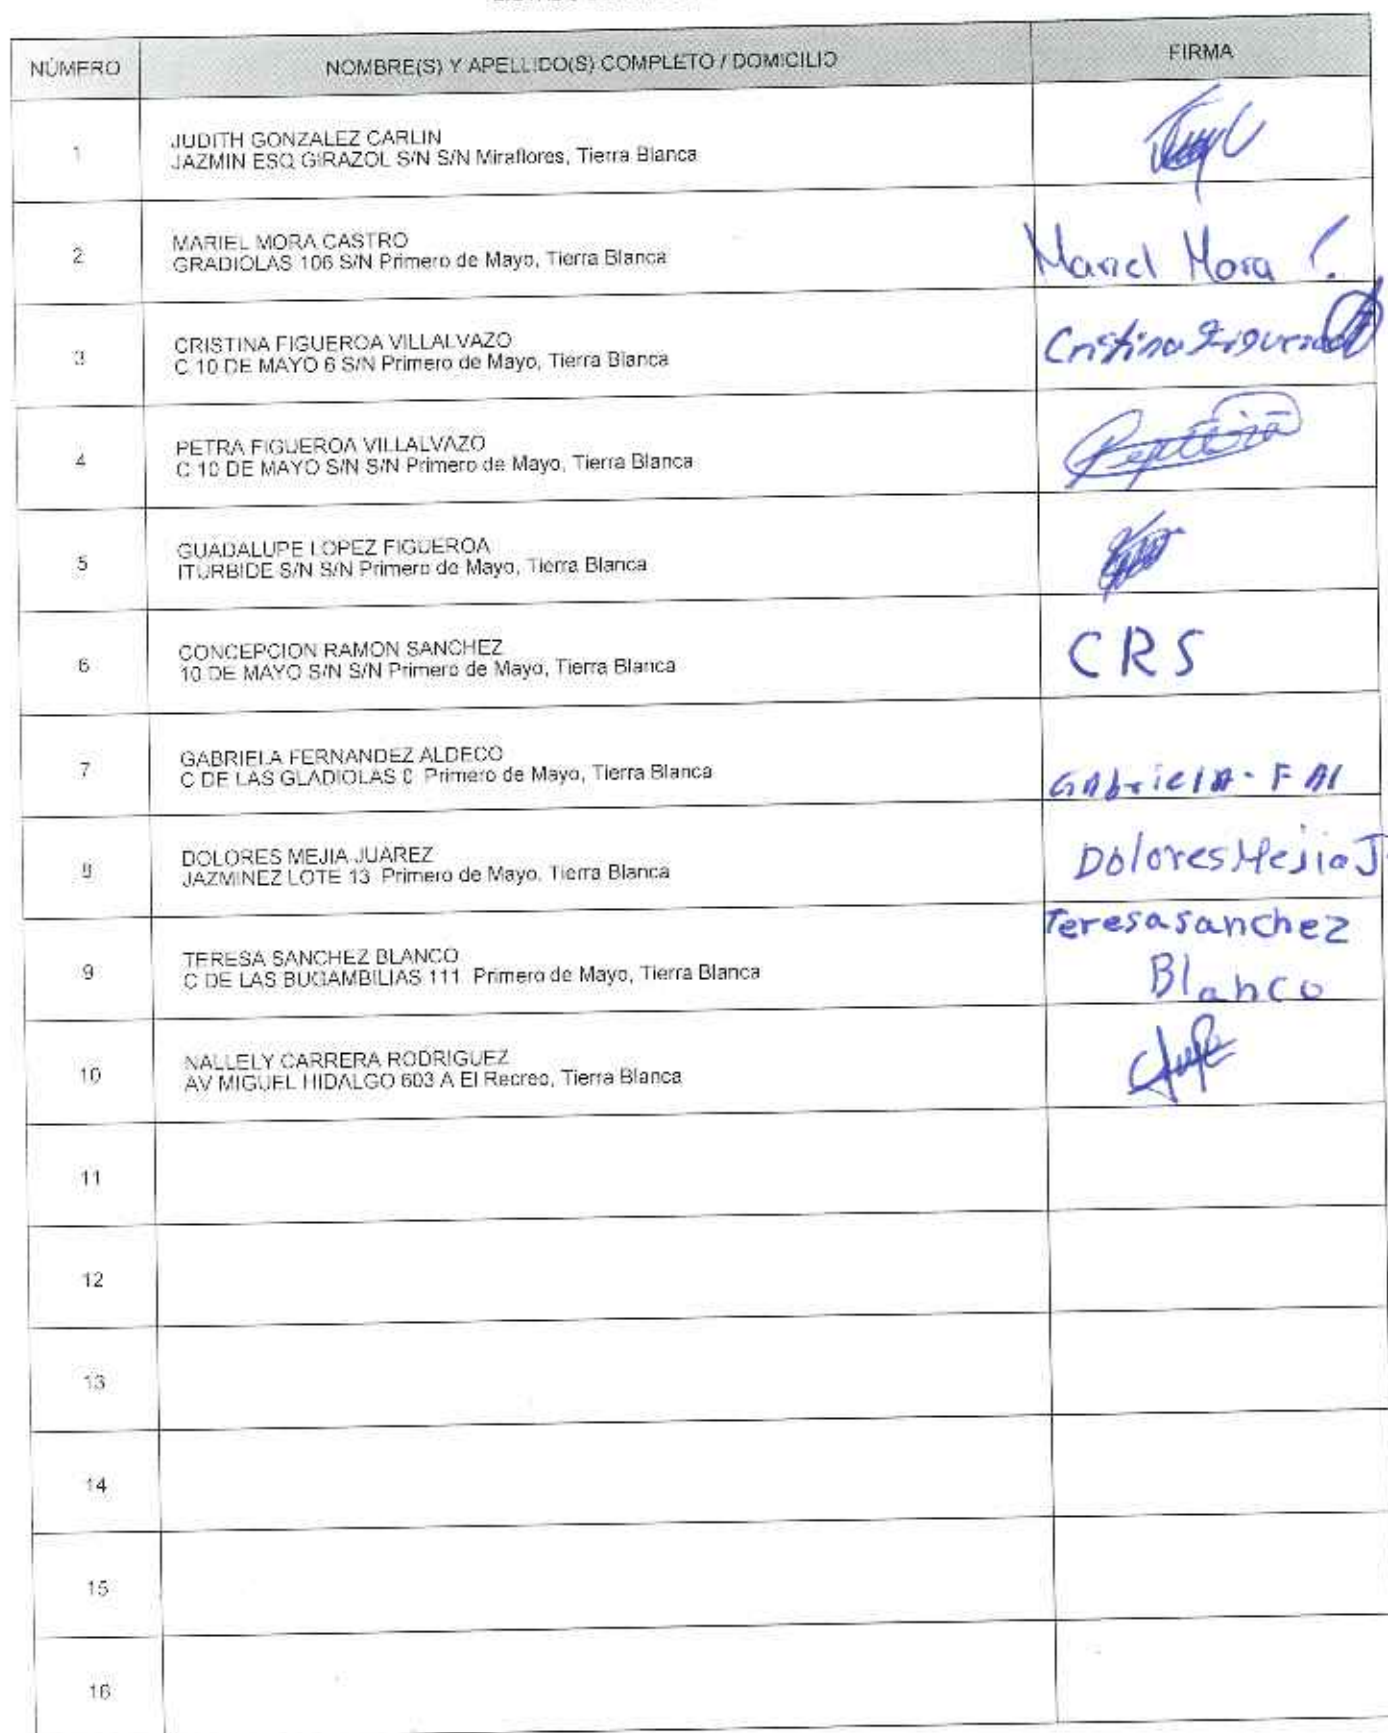 NÚMERO NOMBRE(S) Y APELLIDO(S) COMPLETO / DOMICILIO FIRMA
1 JUDITH GONZALEZ CARLIN
JAZMIN ESQ GIRAZOL S/N S/N Miraflores, Tierra Blanca
2 MARIEL MORA CASTRO
GRADIOLAS 106 S/N Primero de Mayo, Tierra Blanca
Mariel Mora C.
3 CRISTINA FIGUEROA VILLALVAZO
C 10 DE MAYO 6 S/N Primero de Mayo, Tierra Blanca
Cristina Figueroa
4 PETRA FIGUEROA VILLALVAZO
C 10 DE MAYO S/N S/N Primero de Mayo, Tierra Blanca
5 GUADALUPE LOPEZ FIGUEROA
ITURBIDE S/N S/N Primero de Mayo, Tierra Blanca
6 CONCEPCION RAMON SANCHEZ
10 DE MAYO S/N S/N Primero de Mayo, Tierra Blanca
CRS
7 GABRIELA FERNANDEZ ALDECO
C DE LAS GLADIOLAS 0 Primero de Mayo, Tierra Blanca
GAbrielA - F Al
8 DOLORES MEJIA JUAREZ
JAZMINEZ LOTE 13 Primero de Mayo, Tierra Blanca
Dolores Mejia J.
9 TERESA SANCHEZ BLANCO
C DE LAS BUGAMBILIAS 111 Primero de Mayo, Tierra Blanca
Teresa sanchez
Blanco
10 NALLELY CARRERA RODRIGUEZ
AV MIGUEL HIDALGO 603 A El Recreo, Tierra Blanca
11
12
13
14
15
16